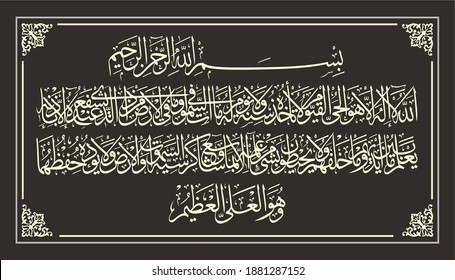 بِسْمِ اللَّهِ الرَّحْمَنِ الرَّحِيمِ
اللَّهُ لَا إِلَهَ إِلَّا هُوَ الْحَيُّ الْقَيُّومُ لَا تَأْخُذُهُ سِنَةٌ وَلَا نَوْمٌ لَهُ مَا فِي السَّمَاوَاتِ وَمَا فِي الْأَرْضِ مَنْ ذَا الَّذِي يَشْفَعُ عِنْدَهُ إِلَّا بِإِذْنِهِ
يَعْلَمُ مَا بَيْنَ أَيْدِيهِمْ وَمَا خَلْفَهُمْ وَلَا يُحِيطُونَ بِشَيْءٍ مِنْ عِلْمِهِ إِلَّا بِمَا شَاءَ وَسِعَ كُرْسِيُّهُ السَّمَاوَاتِ وَالْأَرْضَ وَلَا يَئُودُهُ حِفْظُهُمَا
وَهُوَ الْعَلِيُّ الْعَظِيمُ
shutterstock.com · 1881287152